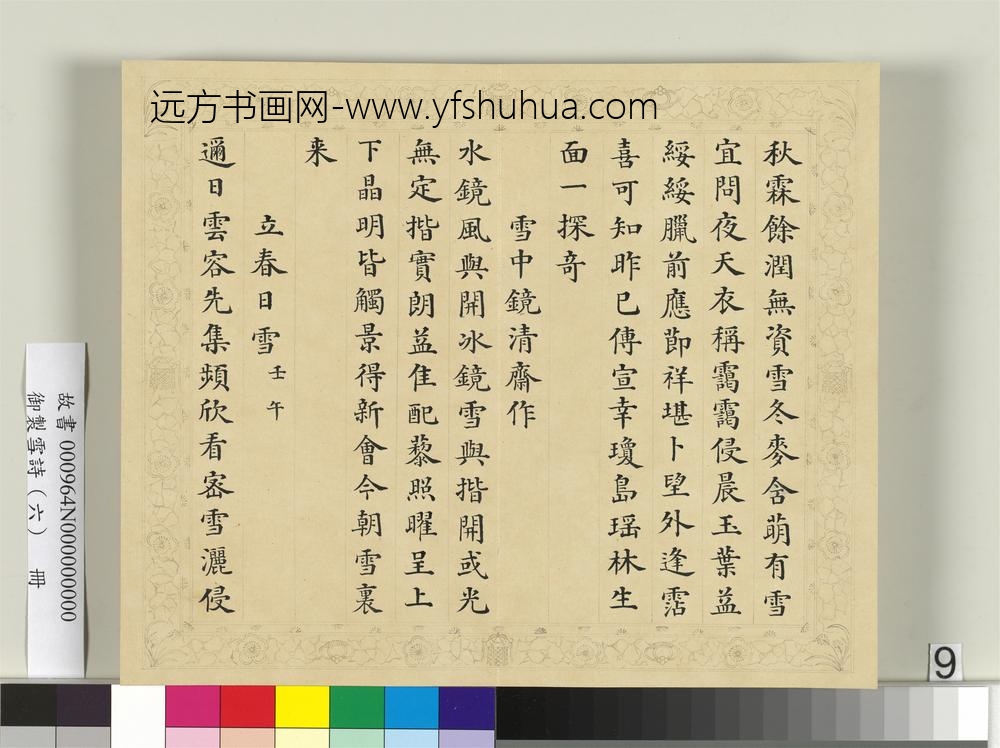 远方书画网-www.yfshuhua.com
秋霖餘潤無資雪冬麥含萌有雪
宜問夜天衣稱靄靄侵晨玉葉益
綏綏臘前應節祥堪卜望外逢霑
喜可知昨已傳宣幸瓊島瑶林生
面一探竒
雪中鏡清齋作
水鏡風與開冰鏡雪與揩開或光
無定揩實朗益隹配藜照曜呈上
下晶明皆觸景得新會今朝雪裏
来
立春日雪壬午
邇日雲容先集頻欣看宻雪灑侵
故書 000964N000000000
御製雪詩(六) 冊
9